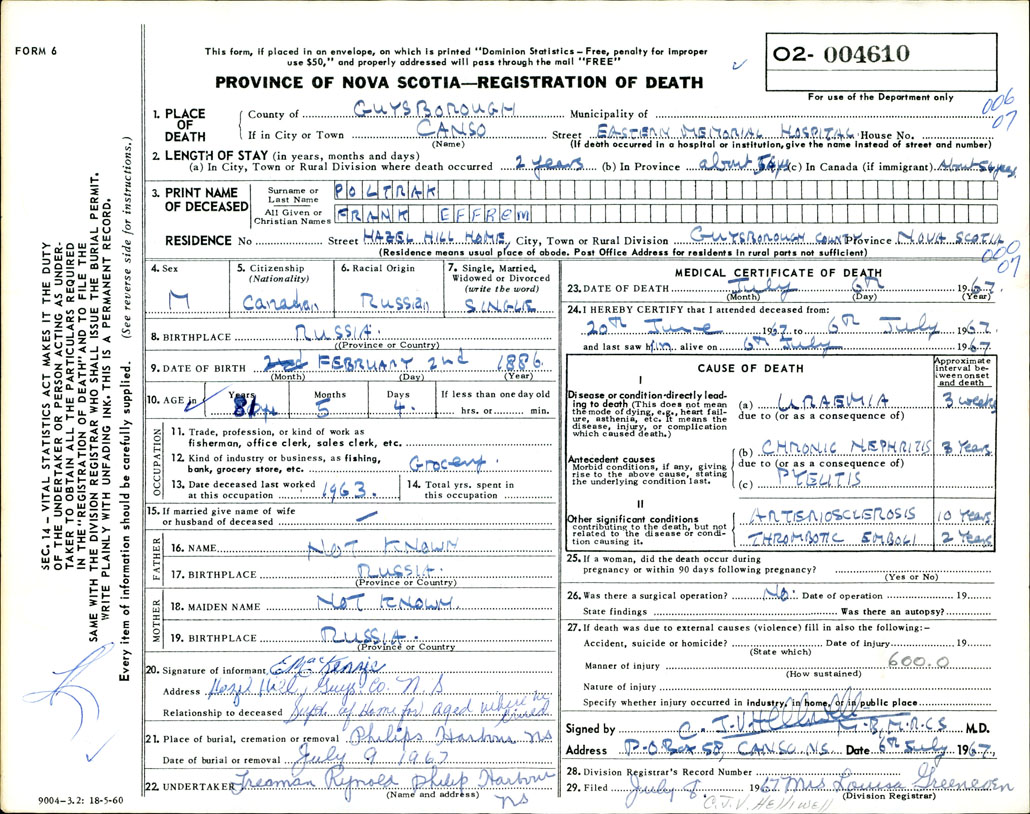 FORM 6
This form, if placed in an envelope, on which is printed "Dominion Statistics – Free, penalty for improper
use $50," and properly addressed will pass through the mail "FREE"
PROVINCE OF NOVA SCOTIA—REGISTRATION OF DEATH
02- 004610
For use of the Department only
006
07
1. PLACE OF DEATH
County of GUYSBOROUGH Municipality of
If in City or Town CANSO Street EASTERN MEMORIAL HOSPITAL House No.
(Name) (If death occurred in a hospital or institution, give the name instead of street and number)
2. LENGTH OF STAY (in years, months and days)
(a) In City, Town or Rural Division where death occurred 2 years (b) In Province about (c) In Canada (if immigrant) About 56 years
3. PRINT NAME OF DECEASED
Surname or Last Name POLTRAK
All Given or Christian Names FRANK EFFREM
RESIDENCE No Street HAZEL HILL HOME, City, Town or Rural Division GUYSBOROUGH COUNTY Province NOVA SCOTIA
(Residence means usual place of abode. Post Office Address for residents in rural parts not sufficient)
000
07
4. Sex M
5. Citizenship (Nationality) Canadian
6. Racial Origin Russian
7. Single, Married, Widowed or Divorced (write the word) SINGLE
8. BIRTHPLACE RUSSIA.
(Province or Country)
9. DATE OF BIRTH 2nd FEBRUARY 2nd 1886
(Month) (Day) (Year)
10. AGE in Years 81 Months 5 Days 4. If less than one day old
hrs. or min.
OCCUPATION
11. Trade, profession, or kind of work as
fisherman, office clerk, sales clerk, etc.
12. Kind of industry or business, as fishing,
bank, grocery store, etc. Grocery.
13. Date deceased last worked
at this occupation 1963.
14. Total yrs. spent in
this occupation
15. If married give name of wife
or husband of deceased —
FATHER
16. NAME NOT KNOWN
17. BIRTHPLACE RUSSIA.
(Province or Country)
MOTHER
18. MAIDEN NAME NOT KNOWN
19. BIRTHPLACE RUSSIA.
(Province or Country
20. Signature of informant E MacKenzie
Address Hazel Hill, Guys. Co. N S
Relationship to deceased Supt. of Home for aged where he
21. Place of burial, cremation or removal Philips Harbour NS
Date of burial or removal July 9 1967
22. UNDERTAKER Freeman Rynold Philip Harbour
(Name and address) NS
9004–3.2: 18-5-60
MEDICAL CERTIFICATE OF DEATH
23. DATE OF DEATH July 6th 1967.
(Month) (Day) (Year)
24. I HEREBY CERTIFY that I attended deceased from:
20th June 1967 to 6th July 1967.
and last saw him alive on 6th July 1967.
CAUSE OF DEATH
Approximate interval between onset and death
I
Disease or condition directly leading to death (This does not mean the mode of dying, e.g., heart failure, asthenia, etc. It means the disease, injury, or complication which caused death.)
(a) URAEMIA 3 weeks
due to (or as a consequence of)
Antecedent causes
Morbid conditions, if any, giving rise to the above cause, stating the underlying condition last.
(b) CHRONIC NEPHRITIS 3 Years
due to (or as a consequence of)
(c) PYELITIS
II
Other significant conditions
contributing to the death, but not related to the disease or condition causing it.
ARTERIOSCLEROSIS 10 Years
THROMBOTIC EMBOLI 2 Years
25. If a woman, did the death occur during
pregnancy or within 90 days following pregnancy?
(Yes or No)
26. Was there a surgical operation? No. Date of operation 19
State findings Was there an autopsy?
27. If death was due to external causes (violence) fill in also the following:–
Accident, suicide or homicide? Date of injury 19
(State which)
Manner of injury 600.0
(How sustained)
Nature of injury
Specify whether injury occurred in industry, in home, or in public place
Signed by C. J. V. Helliwell M.D.
Address P.O Box 58, CANSO. NS. Date 6th July 1967.
28. Division Registrar's Record Number
29. Filed July 8. 1967 Mrs Louisa Greencven
C.J.V. HELLIWELL (Division Registrar)
SEC. 14 – VITAL STATISTICS ACT MAKES IT THE DUTY
OF THE UNDERTAKER OR PERSON ACTING AS UNDER-
TAKER TO OBTAIN ALL THE PARTICULARS REQUIRED
IN THE "REGISTRATION OF DEATH" AND TO FILE THE
SAME WITH THE DIVISION REGISTRAR WHO SHALL ISSUE THE BURIAL PERMIT.
WRITE PLAINLY WITH UNFADING INK. THIS IS A PERMANENT RECORD.
Every item of information should be carefully supplied. (See reverse side for instructions.)